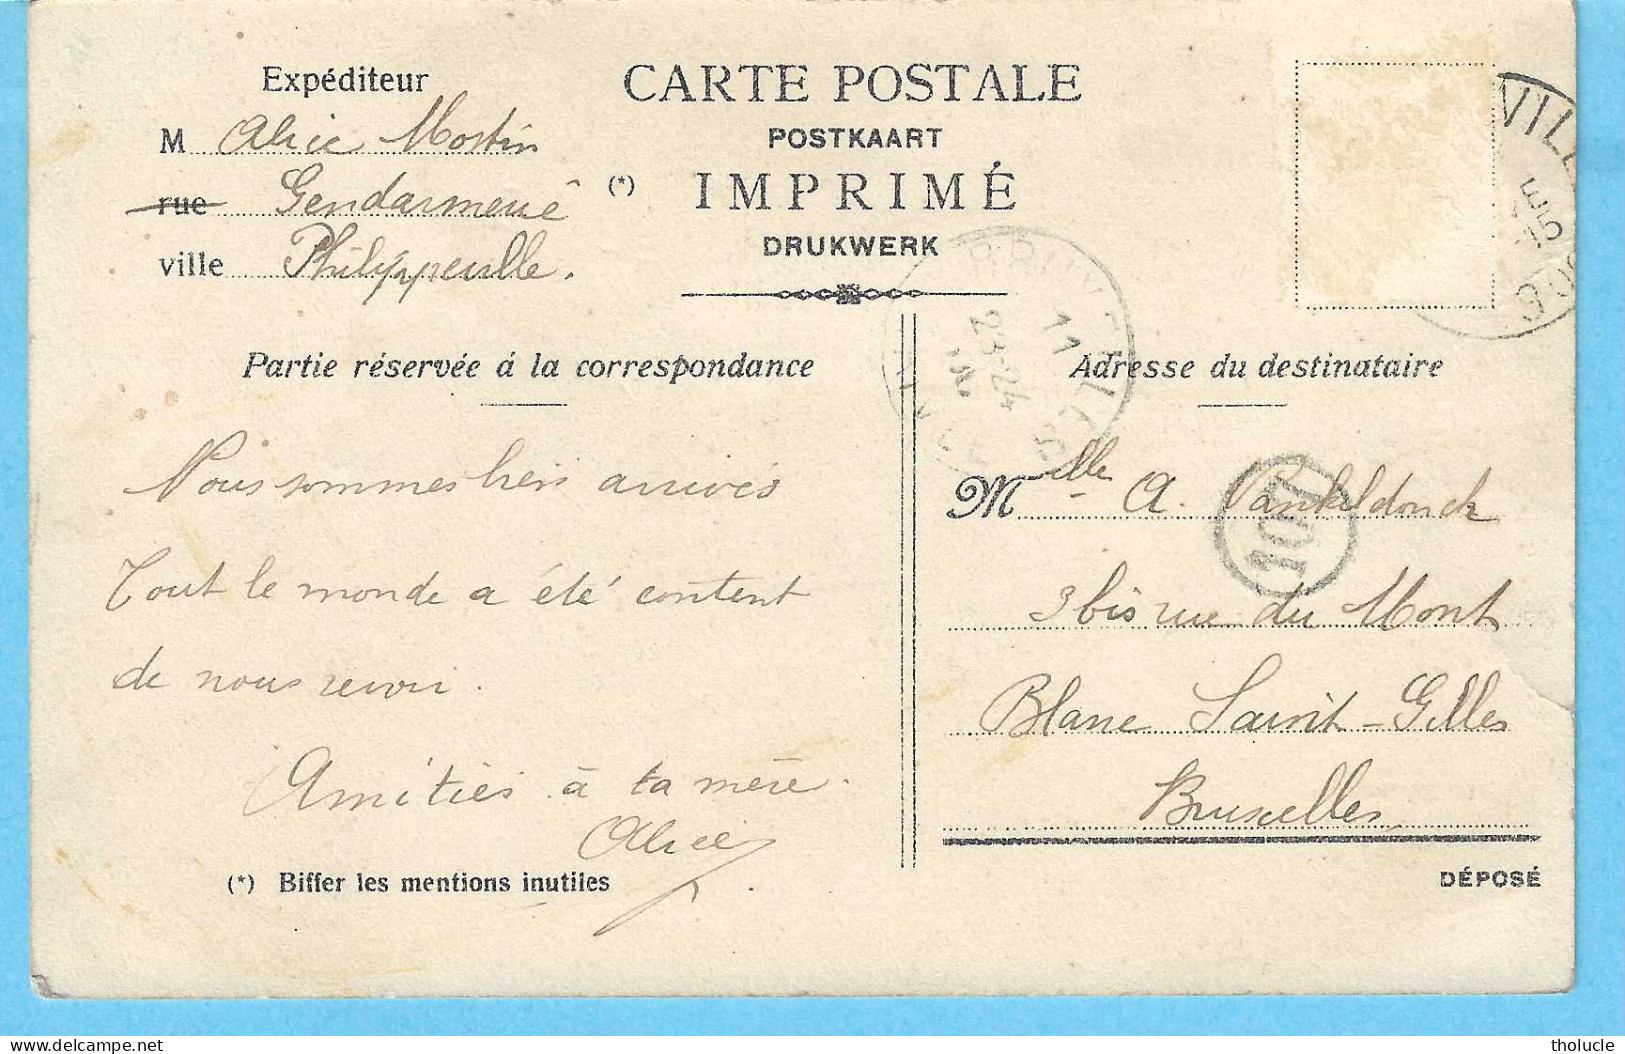 Expéditeur
M Alice Mostin
rue Gendarmerie
ville Philippeville.
CARTE POSTALE
POSTKAART
(*) IMPRIMÉ
DRUKWERK
VILL
Partie réservée á la correspondance
Nous sommes bien arrivés
Tout le monde a été content
de nous revoir.
Amitiés à ta mère.
Alice
(*) Biffer les mentions inutiles
11
23-24
Adresse du destinataire
Mlle A. Vankeldonck
101
3 bis rue du Mont
Blanc Saint-Gilles
Bruxelles
DÉPOSÉ
tholucle